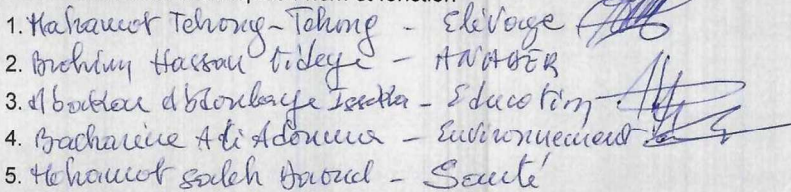 1. Mahamot Tchong-Tchong - Elévage
2. Brahim Hassan Fideye - ANADER
3. Abdoulaye Issakha - Education
4. Bacharine Ali Adouma - Environnement
5. Mahamot saleh Daoud - Santé